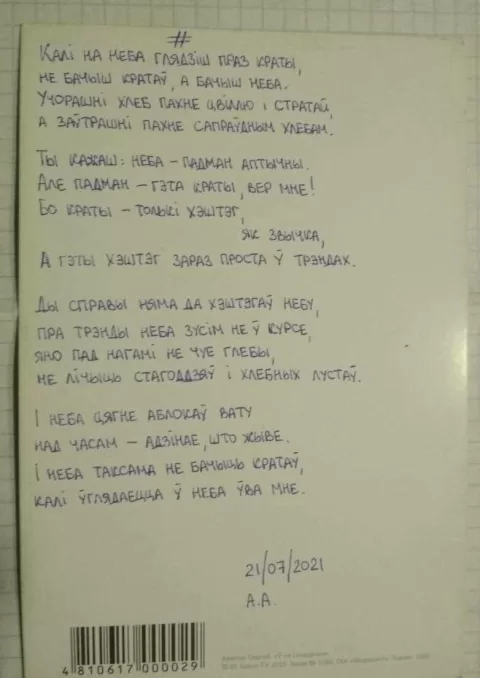 #
Калі на неба глядзіш праз краты,
не бачыш кратаў, а бачыш неба.
Учорашні хлеб пахне цвіллю і стратай,
а заўтрашні пахне сапраўдным хлебам.
Ты кажаш: неба – падман аптычны.
Але падман – гэта краты, вер мне!
Бо краты – толькі хэштэг,
як звычка,
а гэты хэштэг зараз проста ў трэндах.
Ды справы няма да хэштэгаў небу,
пра трэнды неба зусім не ў курсе,
яно пад нагамі не чуе глебы,
не лічыць стагоддзяў і хлебных лустаў.
І неба цягне аблокаў вату
над часам – адзінае, што жыве.
І неба таксама не бачыць кратаў,
калі ўглядаецца ў неба ўва мне.
21/07/2021
А.А.
4 810617 000029